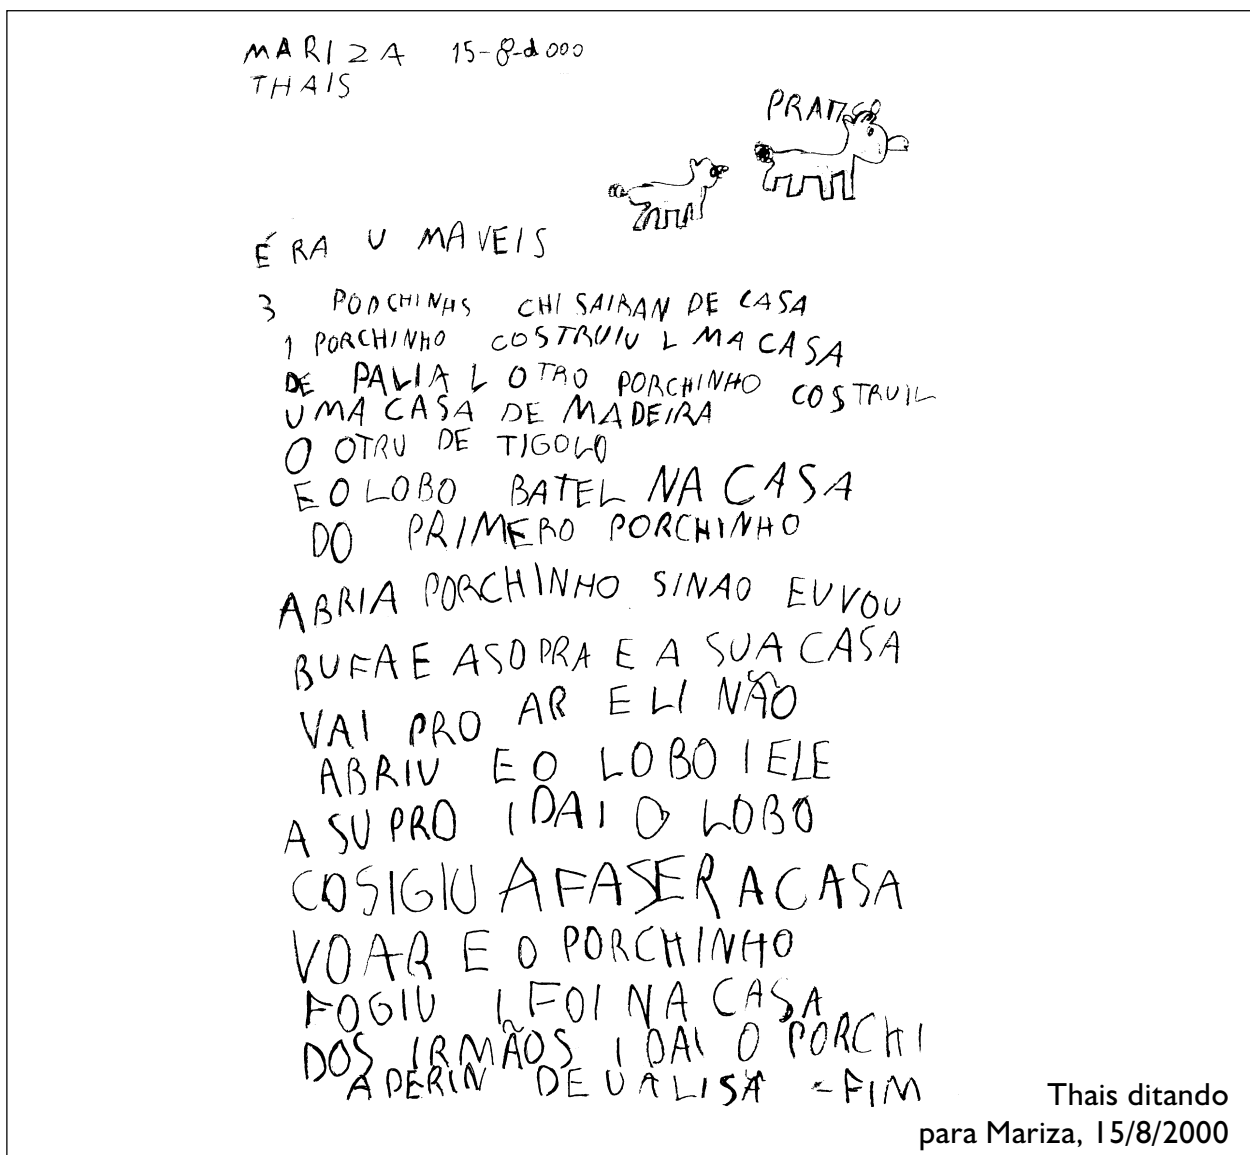 MARIZA 15-8-2000
THAIS
É RA U MAVEIS
3 PODCHINHS CHI SAIRAN DE CASA
1 PORCHINHO COSTRUIU L MA CASA
DE PALIA L OTRO PORCHINHO COSTRUIL
UMA CASA DE MADEIRA
O OTRU DE TIGOLO
E O LOBO BATEL NA CASA
DO PRIMERO PORCHINHO
ABRIA PORCHINHO SINAO EU VOU
BUFA E ASOPRA E A SUA CASA
VAI PRO AR E LI NÃO
ABRIU E O LOBO I ELE
A SU PRO I DAI O LOBO
COSIGIU A FASER A CASA
VOAR E O PORCHINHO
FOGIU I FOI NA CASA
DOS IRMÃOS I DAI O PORCHI
DE
- FIM
Thais ditando
para Mariza, 15/8/2000